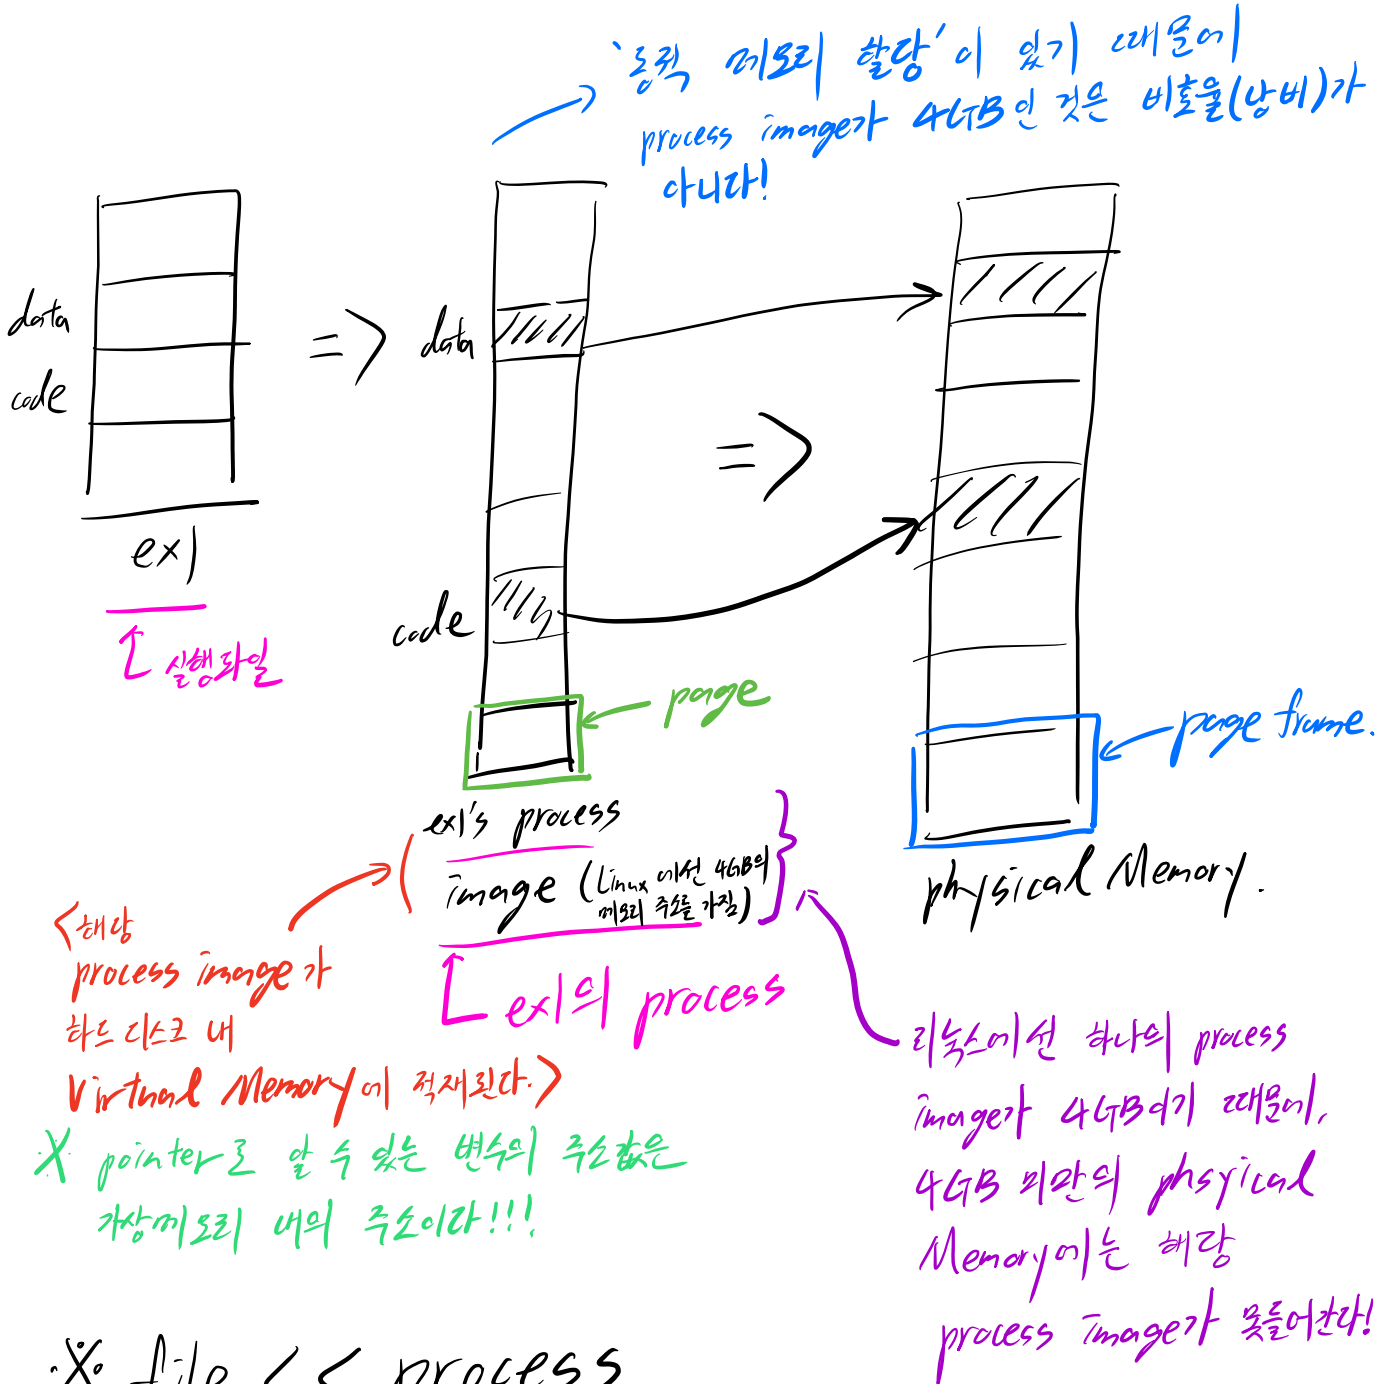 '동적 메모리 할당'이 있기 때문에
process image가 4GB인 것은 비효율(낭비)가
아니다!
data
code
ex1
실행파일
data
code
page
page frame.
ex1's process
image (Linux에선 4GB의
메모리 주소를 가짐)
physical Memory.
ex1의 process
<해당
process image가
하드 디스크 내
Virtual Memory에 적재된다.>
※ pointer로 알 수 있는 변수의 주소값은
가상메모리 내의 주소이다!!!
리눅스에선 하나의 process
image가 4GB이기 때문에,
4GB 미만의 phsyical
Memory에는 해당
process image가 못들어간다!
※ file << process